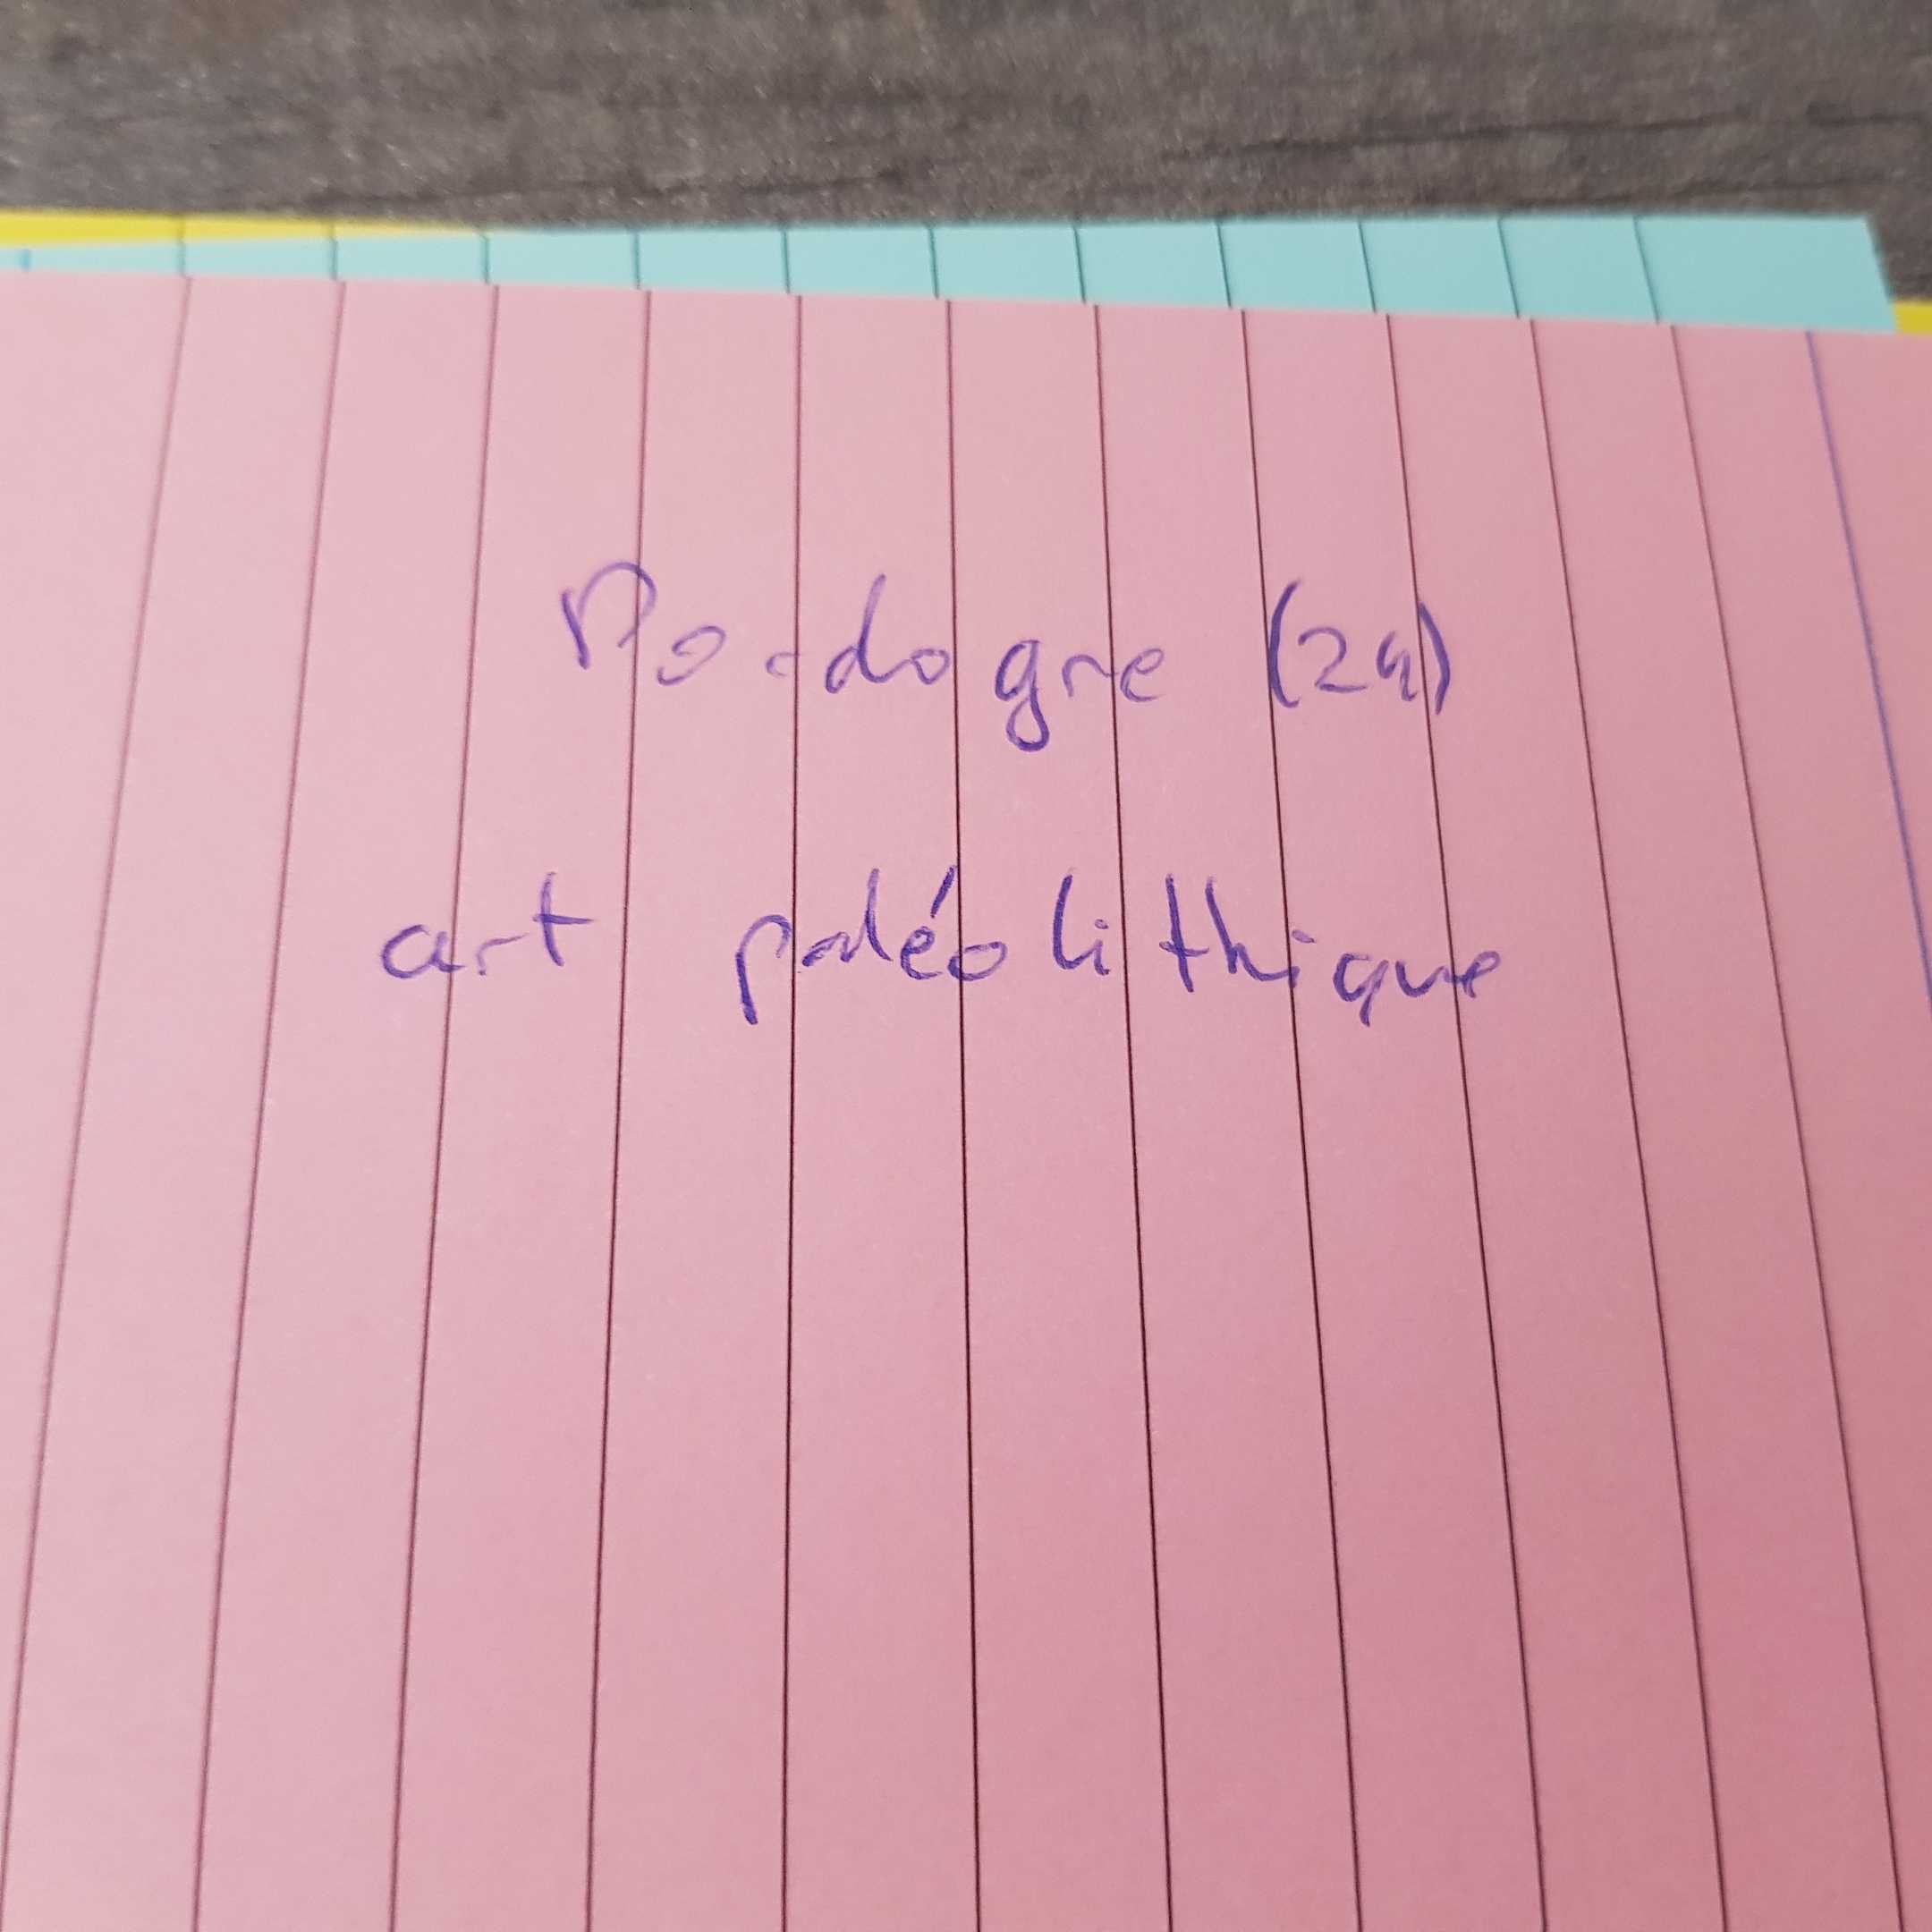 Dordogne (24)
art paléolithique